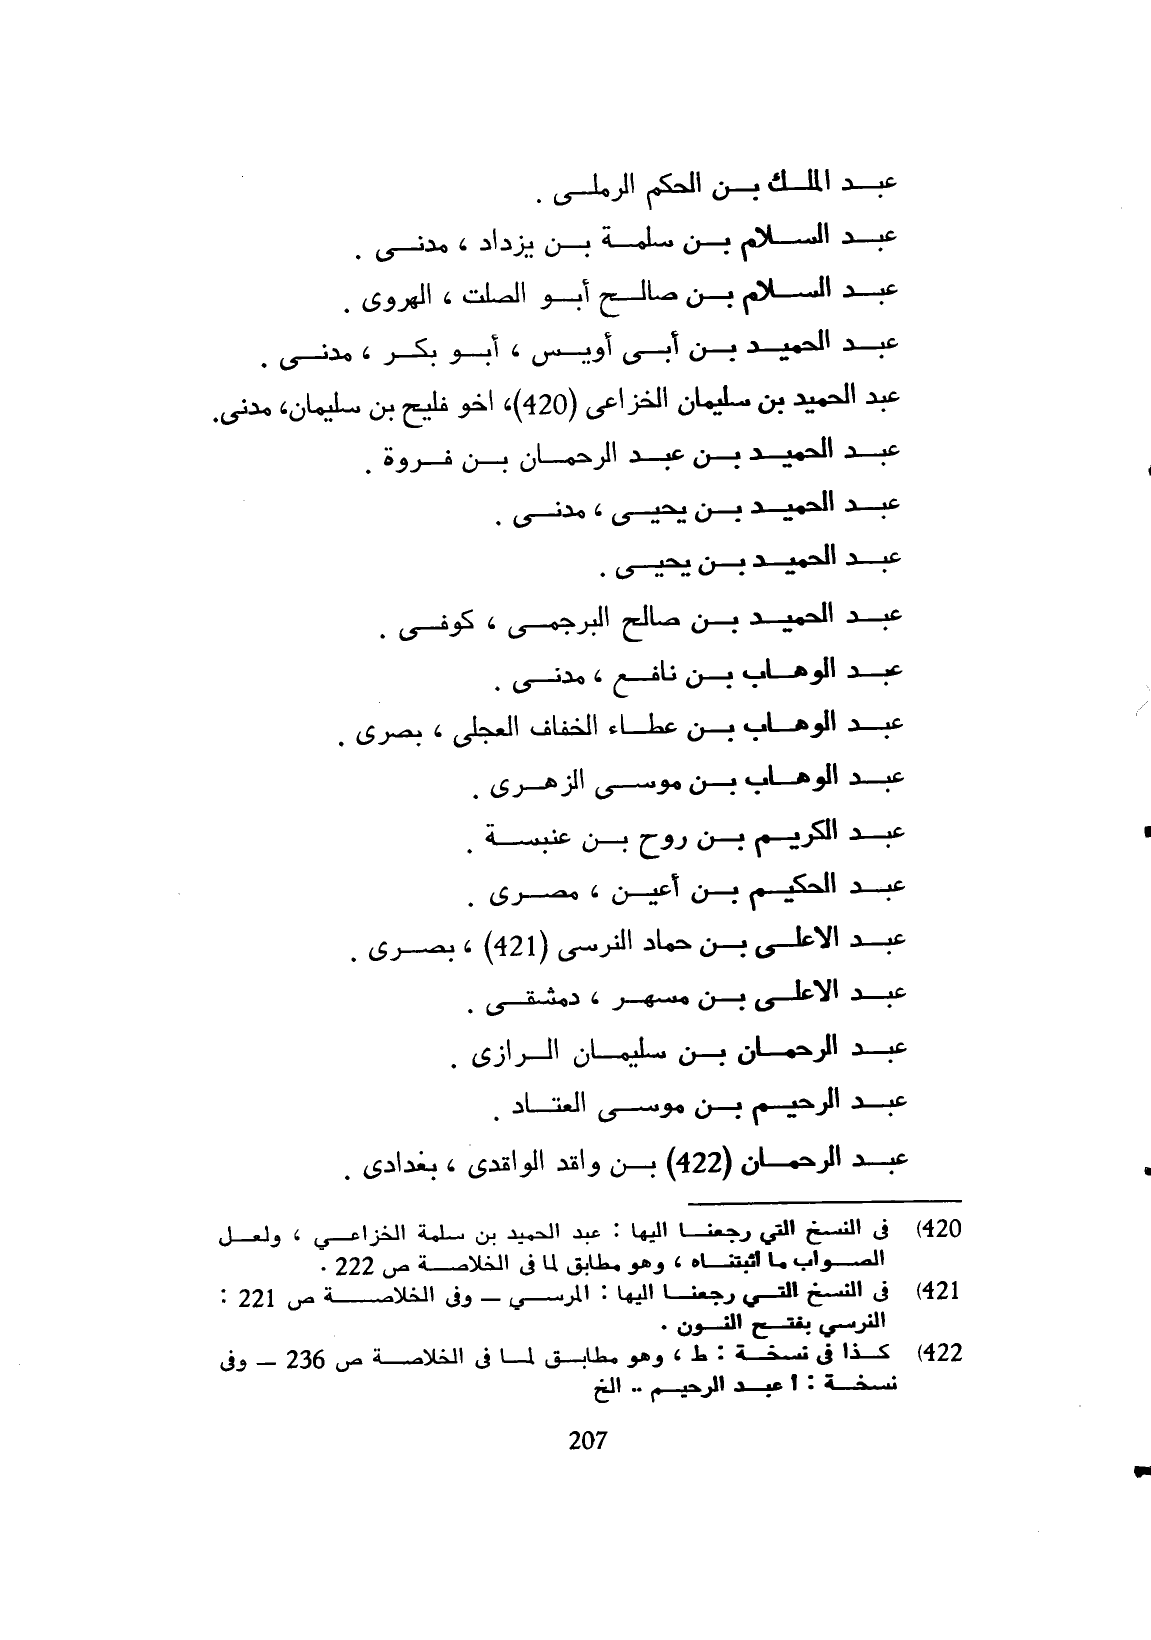 عبد الملك بن الحكم الرملى .
عبد السلام بن سلمة بن يزداد ، مدنى .
عبد السلام بن صالح أبو الصلت ، الهروى .
عبد الحميد بن أبى أويس ، أبو بكر ، مدنى .
عبد الحميد بن سليمان الخزاعى (420)، اخو فليح بن سليمان، مدنى.
عبد الحميد بن عبد الرحمان بن فروة .
عبد الحميد بن يحيى ، مدنى .
عبد الحميد بن يحيى .
عبد الحميد بن صالح البرجمى ، كوفى .
عبد الوهاب بن نافع ، مدنى .
عبد الوهاب بن عطاء الخفاف العجلى ، بصرى .
عبد الوهاب بن موسى الزهرى .
عبد الكريم بن روح بن عنبسة .
عبد الحكيم بن أعين ، مصرى .
عبد الاعلى بن حماد النرسى (421) ، بصرى .
عبد الاعلى بن مسهر ، دمشقى .
عبد الرحمان بن سليمان الرازى .
عبد الرحيم بن موسى العتاد .
عبد الرحمان (422) بن واقد الواقدى ، بغدادى .
420) فى النسخ التي رجعنا اليها : عبد الحميد بن سلمة الخزاعي ، ولعل
الصواب ما اثبتناه ، وهو مطابق لما فى الخلاصة ص 222 .
421) فى النسخ التي رجعنا اليها : المرسي — وفى الخلاصة ص 221 :
النرسي بفتح النون .
422) كذا فى نسخة : ط ، وهو مطابق لما فى الخلاصة ص 236 — وفى
نسخة : أ عبد الرحيم .. الخ
207